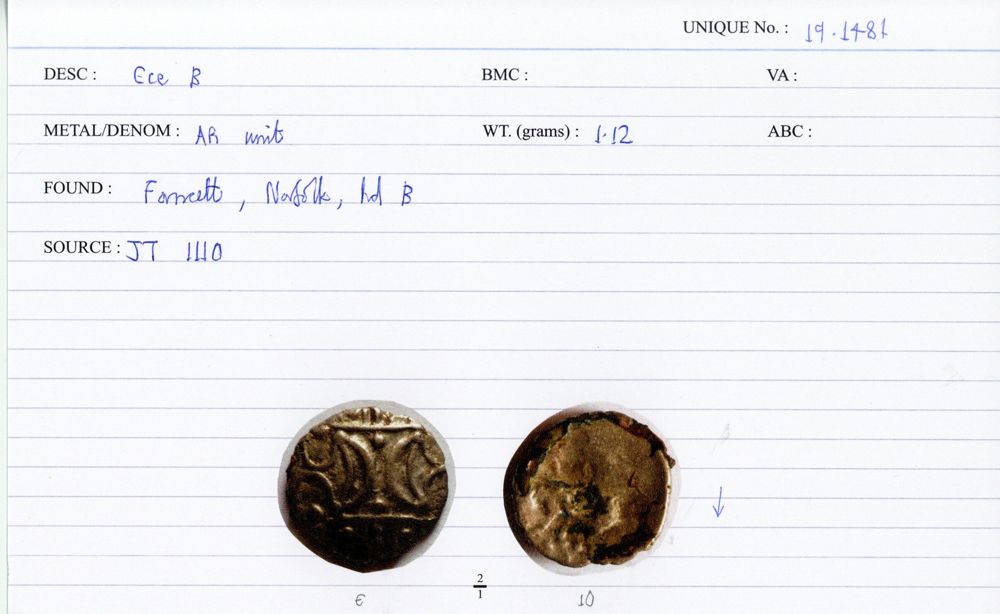 UNIQUE No. : 19.1481
DESC : Ece B BMC : VA :
METAL/DENOM : AR unit WT. (grams) : 1.12 ABC :
FOUND : Forncett, Norfolk, hd B
SOURCE : JT 1110
2
1
10